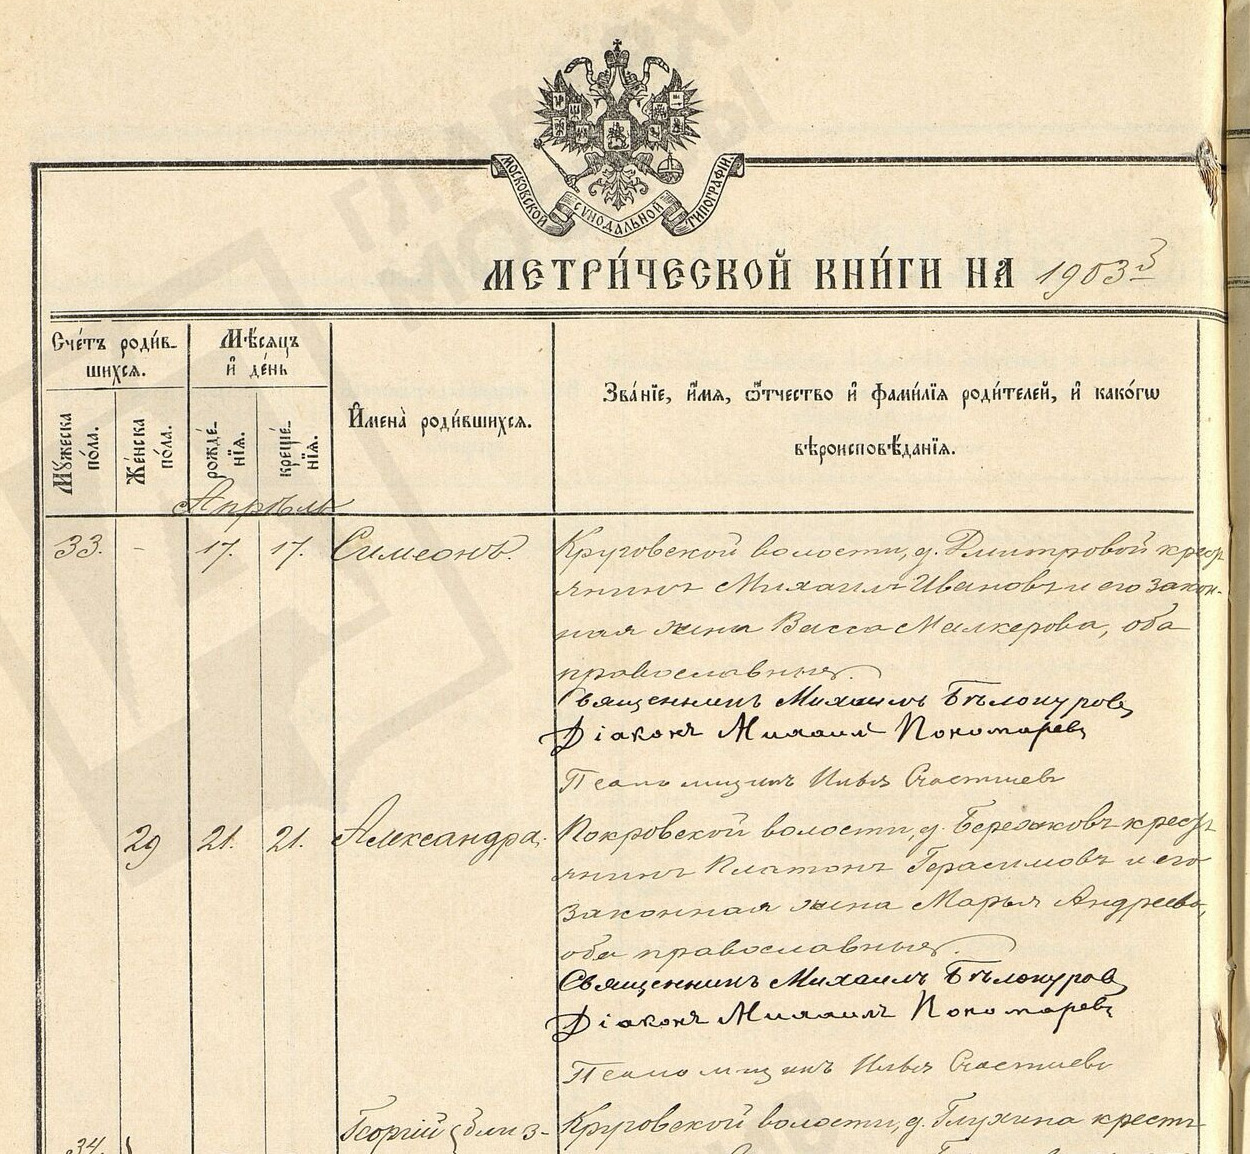 МОСКОВСКОЙ СѴНОДАЛЬНОЙ ТИПОГРАФІИ
МЕТРИ́ЧЕСКОЙ КНИ́ГИ НА 1903 3
Сче́тъ роди́в-
шихсѧ.
Мѣ́сѧцъ
и҆ де́нь
И҆мена̀ роди́вшихсѧ.
Зва́нїе, и҆́мѧ, ѻ҆́тчество и҆ фами́лїѧ роди́телей, и҆ како́гѡ
вѣроисповѣ́данїѧ.
Мꙋ́жеска
по́ла.
Же́нска
по́ла.
рожде́-
нїѧ.
креще́-
нїѧ.
Апрѣль
33. - 17. 17. Симеонъ. Круговской волости, д. Дмитровой крест
янинъ Михаилъ Ивановъ и его закон-
ная жена Васса Малкерова, оба
православные.
Священникъ Михаилъ Бѣлокуровъ
Діаконъ Михаилъ Пономаревъ
Псаломщикъ Илья Счастневъ
29 21. 21. Александра. Покровской волости, д. Березковъ крест
янинъ Платонъ Герасимовъ и его
законная жена Марья Андреева,
оба православные.
Священникъ Михаилъ Бѣлокуровъ
Діаконъ Михаилъ Пономаревъ
Псаломщикъ Илья Счастневъ
Георгій (близ- Круговской волости, д. Глухина кресть
34.